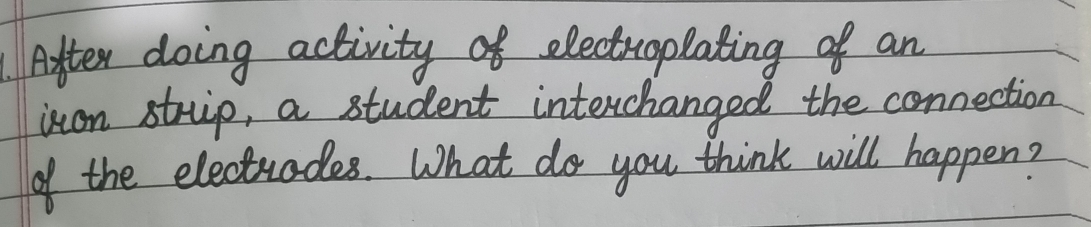 1. After doing activity of electroplating of an
iron strip, a student interchanged the connection
of the electrodes. What do you think will happen?